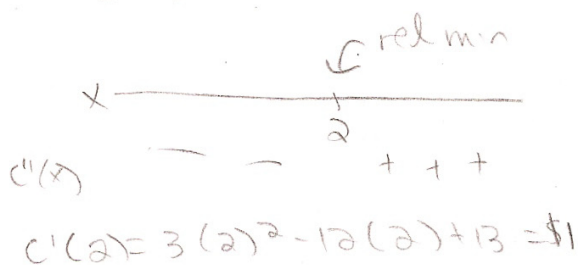 rel min
X
2
C''(x) — — + + +
C'(2) = 3(2)² - 12(2) + 13 = $1